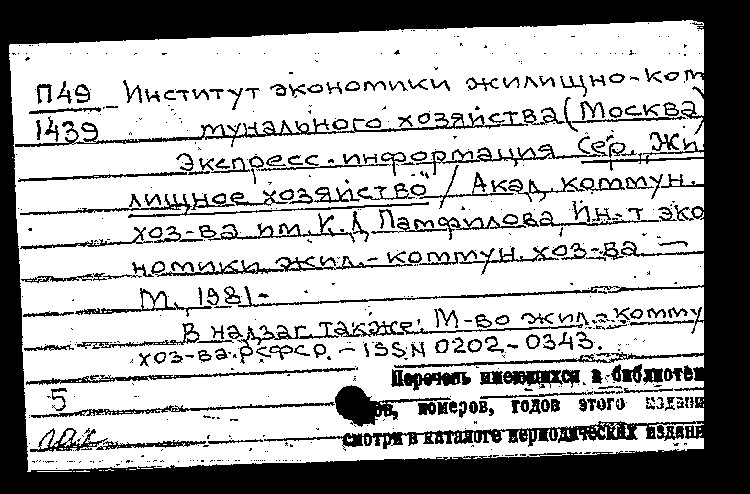 П49 Институт экономики жилищно-ком
1439 мунального хозяйства (Москва)
Экспресс-информация Сер. „Жи
лищное хозяйство" / Акад. коммун.
хоз-ва им. К.Д. Памфилова, Ин-т эко
номики жил.-коммун. хоз-ва —
М., 1981-
В надзаг. также: М-во жил.-комму
хоз-ва РСФСР. - ISSN 0202-0343.
Перечень имеющихся в библиотек
5
ов, номеров, годов этого издани
смотри в каталоге периодических издани